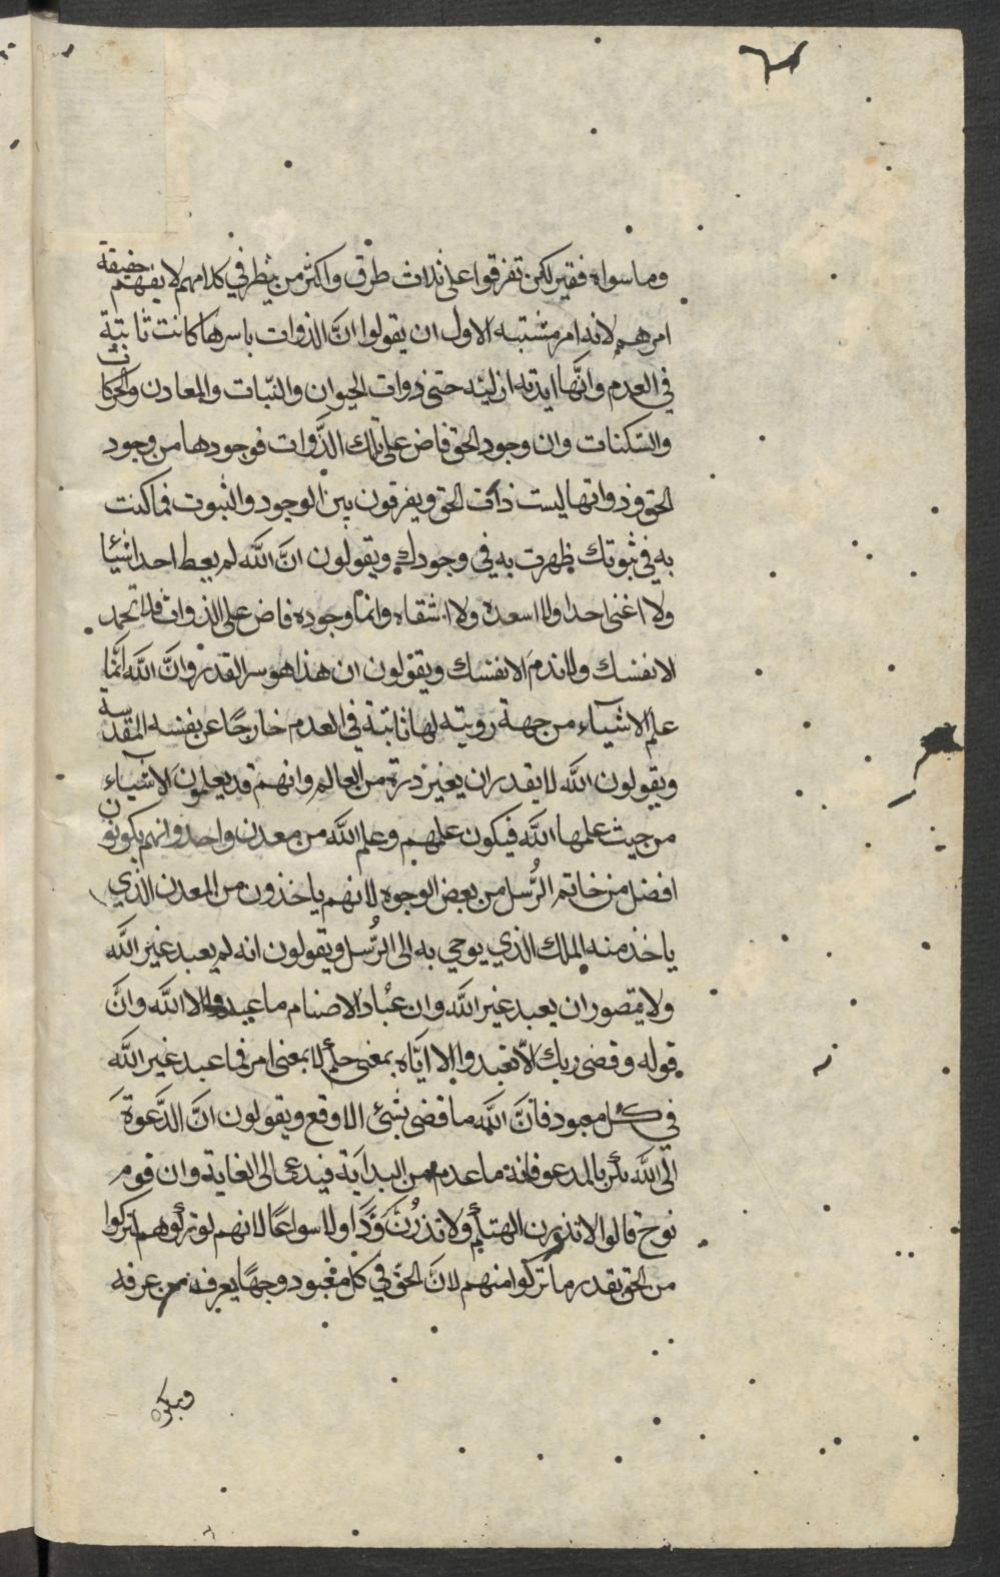 وما سواه فقير لكن تفرقوا على ثلاث طرق واكثر من ينظر في كلامهم لا يفهم حقيقة
امرهم لانه امر مشتبه الاول ان يقولوا انَّ الذوات باسرها كانت ثابتة
في العدم وانَّها ابدية ازلية حتى ذوات الحيوان والنّبات والمعادن والحركات
والسّكنات وان وجود الحق فاض على تلك الذَّوات فوجودها من وجود
الحق وذواتها ليست ذات الحق ويفرقون بين الوجود والثبوت فما كنت
به في ثبوتك ظهرت به في وجودك ويقولون انَّ الله لم يعط احدا شيئا
ولا اغنى احدا ولا اسعده ولا اشقاه وانما وجوده فاض على الذوات فلا تحمد
الا نفسك ولا تذم الا نفسك ويقولون ان هذا هو سر القدر وانَّ الله انَّما
علم الاشياء من جهة رويته لها ثابتة في العدم خارجًا عن نفسه المقدسة
ويقولون الله لا يقدر ان يغير ذرة من العالم وانهم قد يعلمون الاشياء
من حيث علمها الله فيكون علمهم وعلم الله من معدن واحد وانهم يكونون
افضل من خاتم الرُّسل من بعض الوجوه لانهم ياخذون من المعدن الذي
ياخذ منه الملك الذي يوحي به الى الرُّسل ويقولون انه لم يعبد غير الله
ولا يتصور ان يعبد غير الله وان عبّاد الاصنام ما عبدوا الا الله وانَّ
قوله وقضى ربك الّا تعبدوا الا ايّاه بمعنى حكم لا بمعنى امر فما عبد غير الله
في كل معبود فانَّ الله ما قضى بشئ الا وقع ويقولون انَّ الدَّعوة
الى الله مكر بالمدعو فانه ما عدم من البداية فيدعى الى الغاية وان قوم
نوح قالوا لا تذرن الهتكم ولا تذرُنَّ وَدًّا ولا سواعًا لانهم لو تركوهم لتركوا
من الحق بقدر ما تركوا منهم لانَّ الحق في كل معبود وجهًا يعرفه من عرفه
وينكره